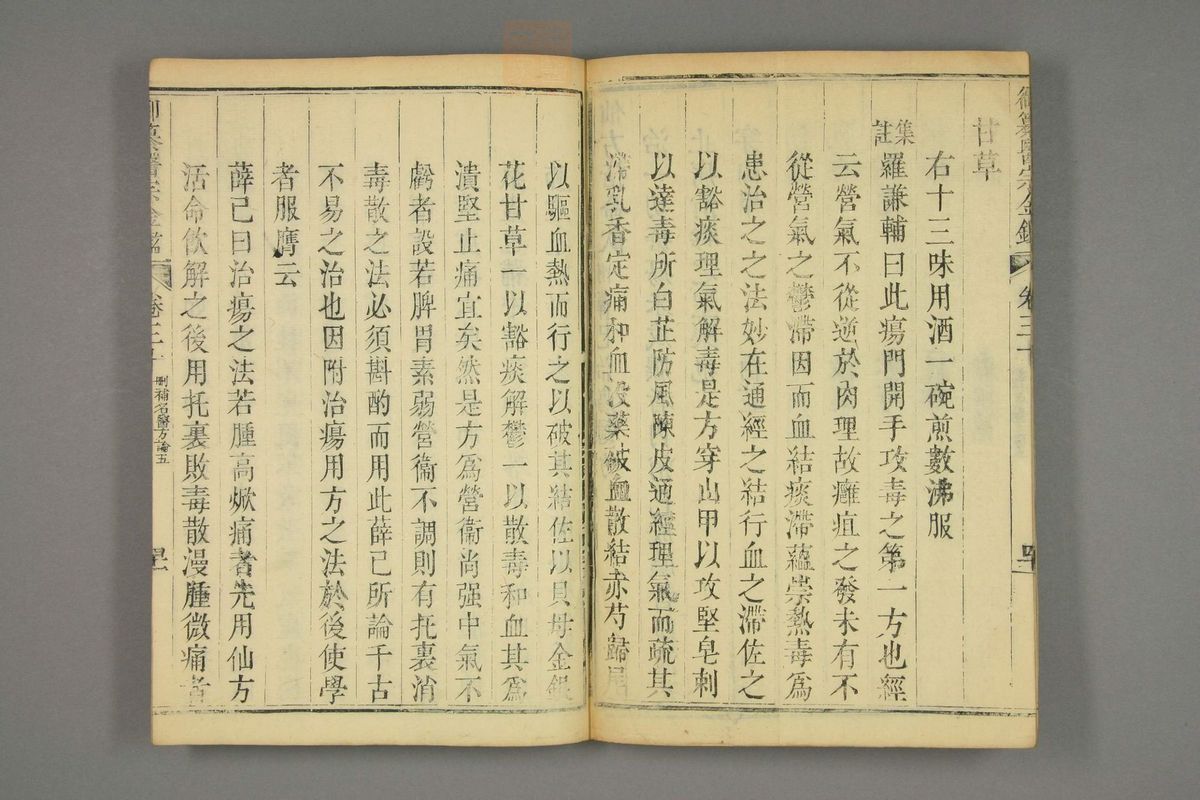 甘草
右十三味用酒一碗煎數沸服
集註羅謙輔曰此瘍門開手攻毒之第一方也經
云營氣不從逆於肉理故癰疽之發未有不
從營氣之鬱滯因而血結痰滯蘊崇熱毒爲
患治之之法妙在通經之結行血之滯佐之
以豁痰理氣解毒是方穿山甲以攻堅皂刺
以達毒所白芷防風陳皮通經理氣而疏其
滯乳香定痛和血没藥破血散結赤芍歸尾
以驅血熱而行之以破其結佐以貝母金銀
花甘草一以豁痰解鬱一以散毒和血其爲
潰堅止痛宜矣然是方爲營衞尚强中氣不
虧者設若脾胃素弱營衞不調則有托裏消
毒散之法必須斟酌而用此薛己所論千古
不易之治也因附治瘍用方之法於後使學
者服膺云
薛己曰治瘍之法若腫高焮痛者先用仙方
活命飮解之後用托裏敗毒散漫腫微痛者
御纂醫宗金鑑
卷三十
刪補名醫方論五